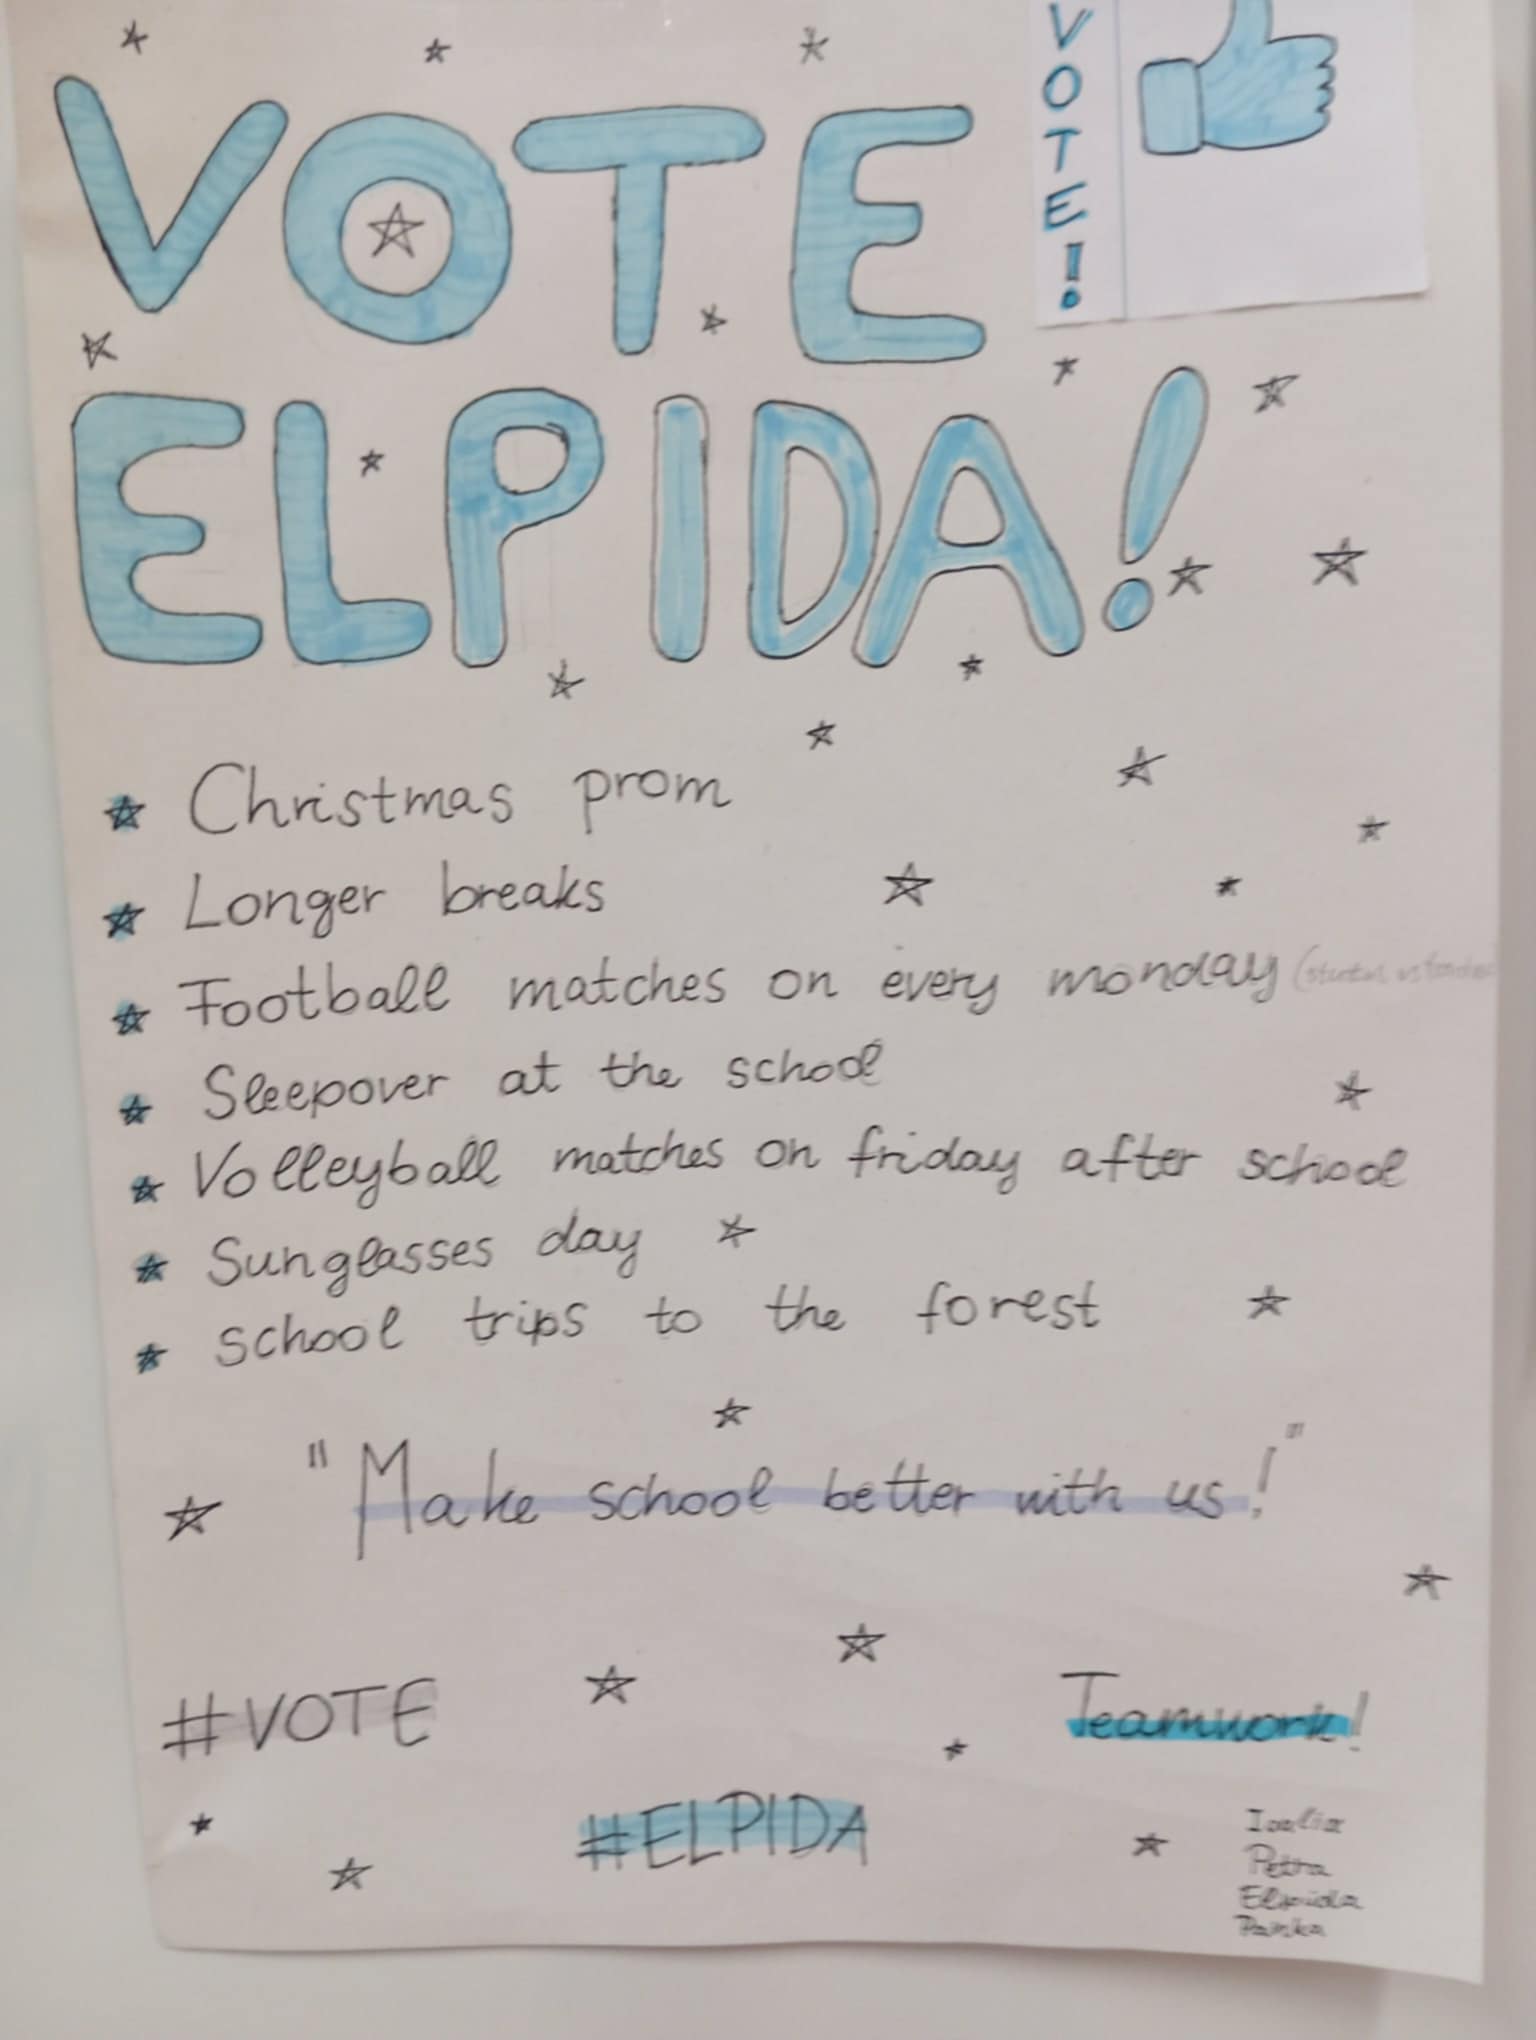 VOTE
ELPIDA!
VOTE!
Christmas prom
Longer breaks
Football matches on every monday
Sleepover at the school
Volleyball matches on friday after school
Sunglasses day
school trips to the forest
"Make school better with us!"
#VOTE
Teamwork!
#ELPIDA
Petra
Elpida
Panka